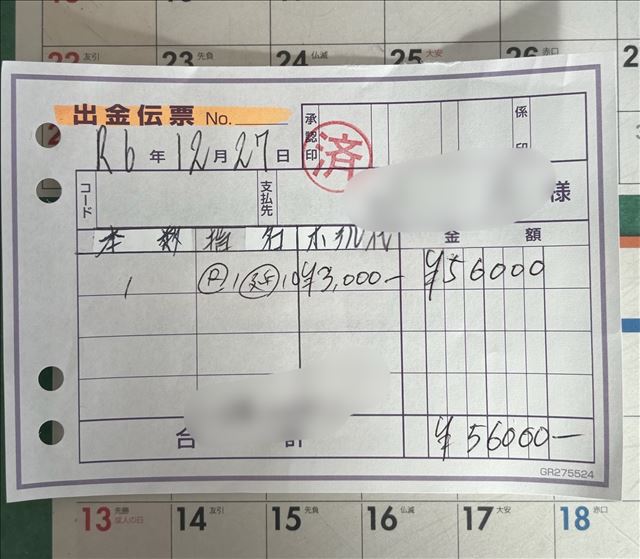 22 友引 23 先負 24 仏滅 25 大安 26 赤口
出金伝票 No.
承認印 済 係印
R6年12月27日
コード 支払先 様
本数 指名 ホテル代 金額
1 ¥3,000- ¥56000
合計 ¥56000-
GR275524
13 先勝 成人の日 14 友引 15 先負 16 仏滅 17 大安 18 赤口